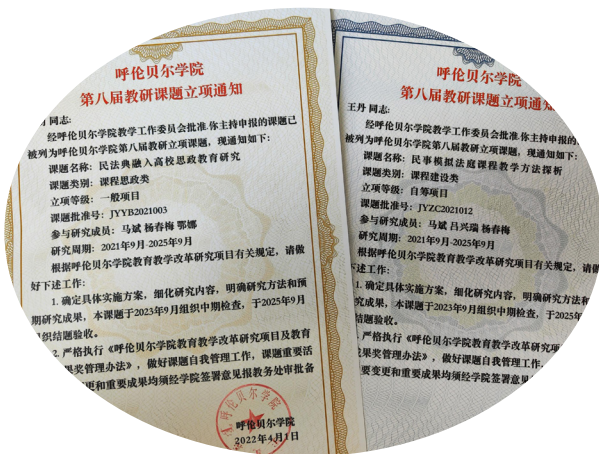 呼伦贝尔学院
第八届教研课题立项通知
同志:
经呼伦贝尔学院教学工作委员会批准,你主持申报的课题已
被列为呼伦贝尔学院第八届教研立项课题，现通知如下：
课题名称：民法典融入高校思政教育研究
课题类别：课程思政类
立项等级：一般项目
课题批准号：JYYB2021003
参与研究成员：马斌 杨春梅 鄂娜
研究周期：2021年9月-2025年9月
根据呼伦贝尔学院教育教学改革研究项目有关规定，请做
好下述工作：
1. 确定具体实施方案，细化研究内容，明确研究方法和预
期研究成果，本课题于2023年9月组织中期检查，于2025年9月
织结题验收。
2. 严格执行《呼伦贝尔学院教育教学改革研究项目及教育
果奖管理办法》，做好课题自我管理工作，课题重要活
变更和重要成果均须经学院签署意见报教务处审批备
呼伦贝尔学院
呼伦贝尔学院
2022年4月1日
呼伦贝尔学院
第八届教研课题立项通知
王丹 同志:
经呼伦贝尔学院教学工作委员会批准,你主持申报的
被列为呼伦贝尔学院第八届教研立项课题，现通知如下：
课题名称：民事模拟法庭课程教学方法探析
课题类别：课程建设类
立项等级：自筹项目
课题批准号：JYZC2021012
参与研究成员：马斌 吕兴瑞 杨春梅
研究周期：2021年9月-2025年9月
根据呼伦贝尔学院教育教学改革研究项目有关规定，请
下述工作：
1. 确定具体实施方案，细化研究内容，明确研究方法和
研究成果，本课题于2023年9月组织中期检查，于2025年
织结题验收。
严格执行《呼伦贝尔学院教育教学改革研究项目及
果奖管理办法》，做好课题自我管理工作，课题
要变更和重要成果均须经学院签署意见